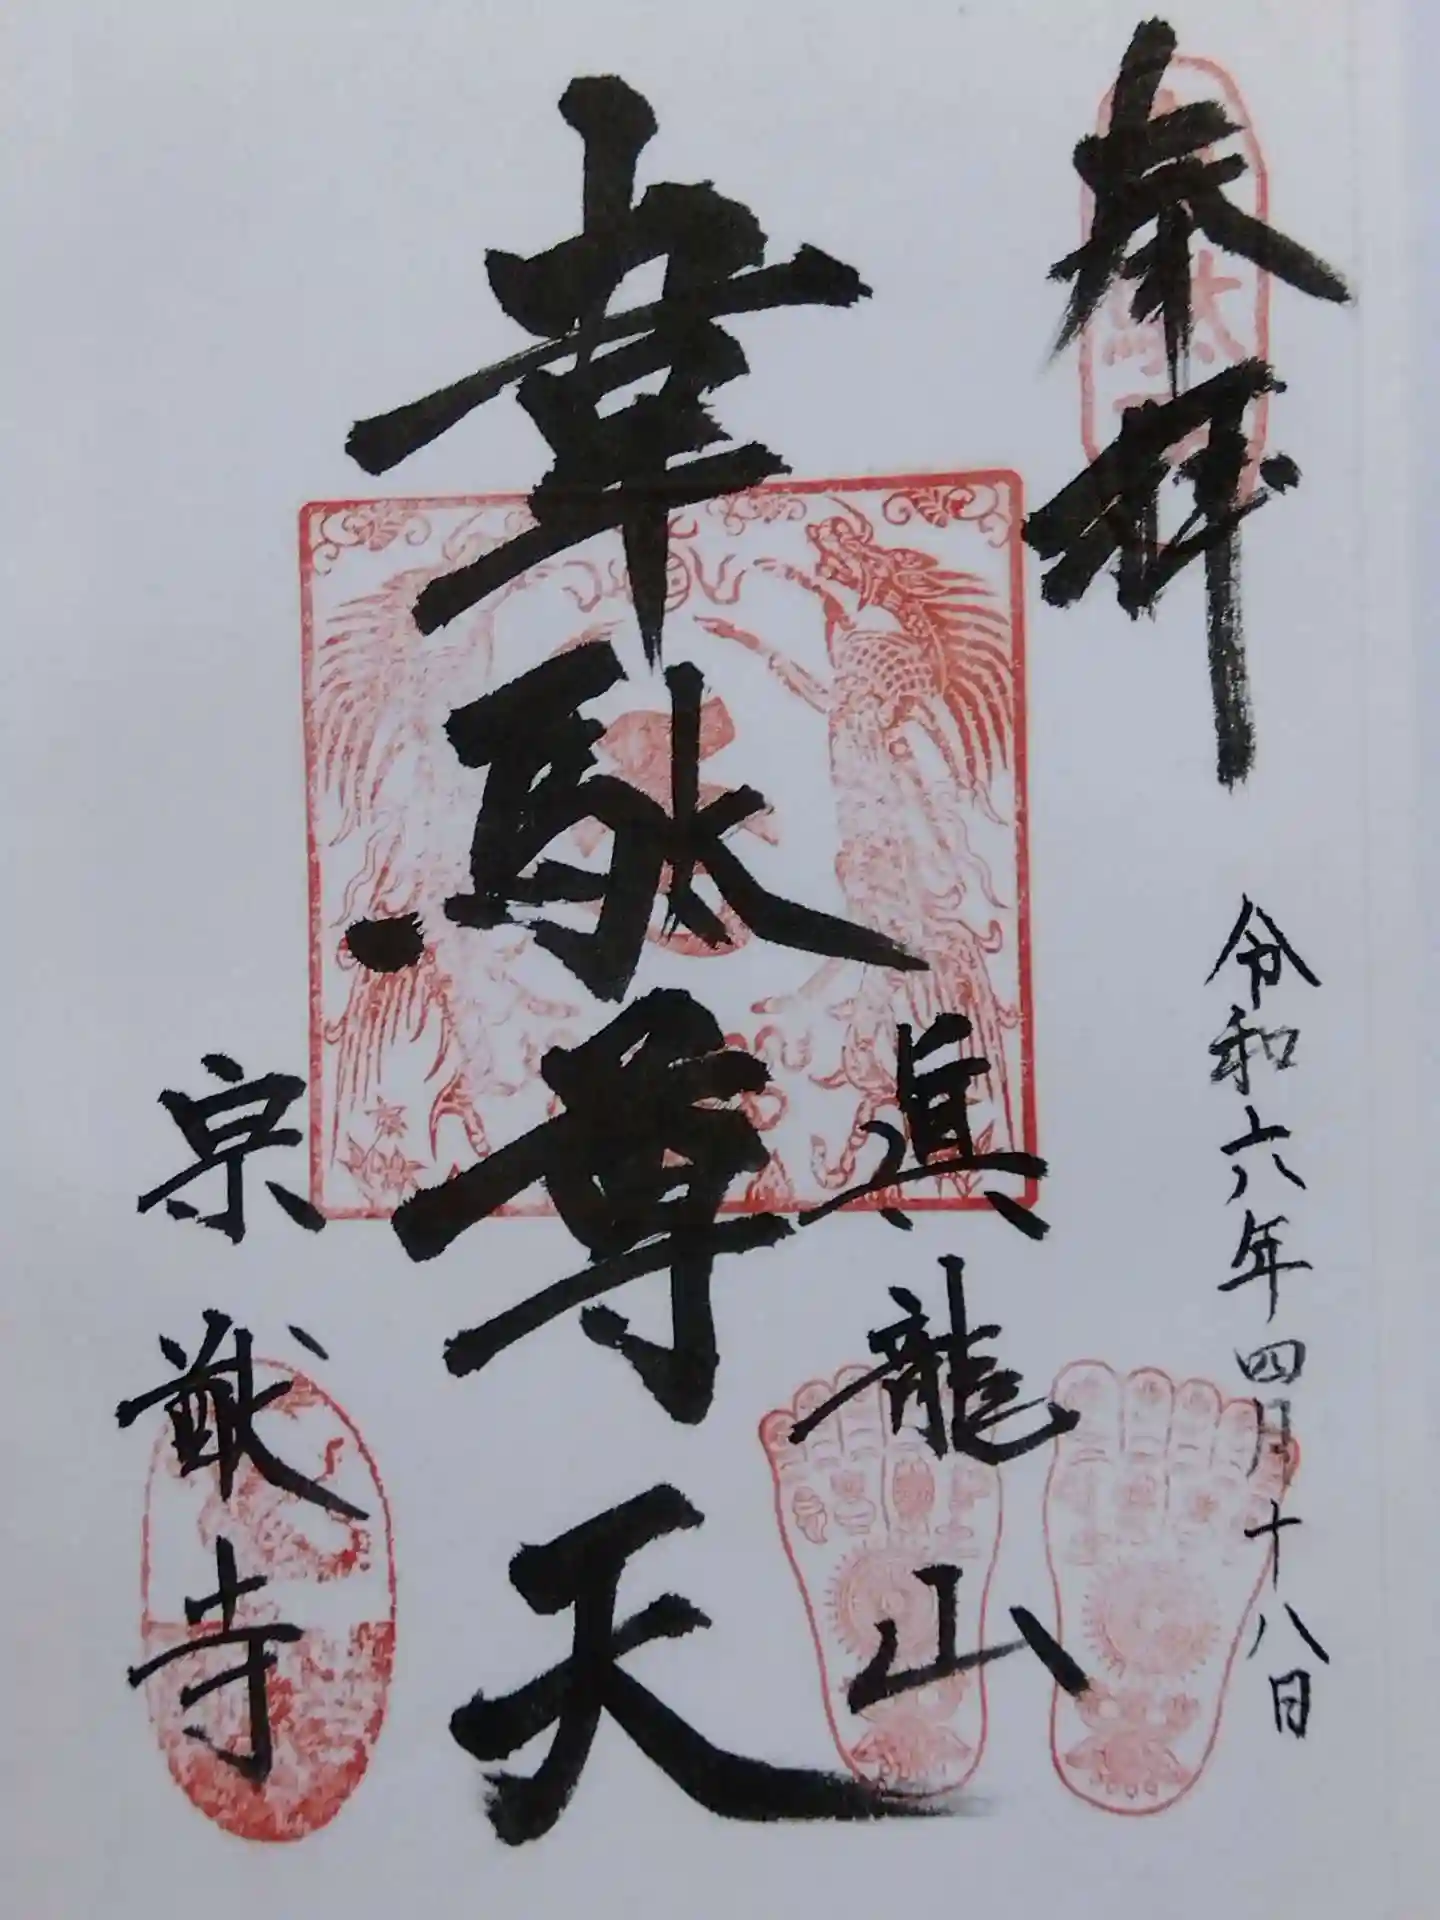 奉拝
令和六年四月十八日
真龍山
韋駄尊天
宗猷寺